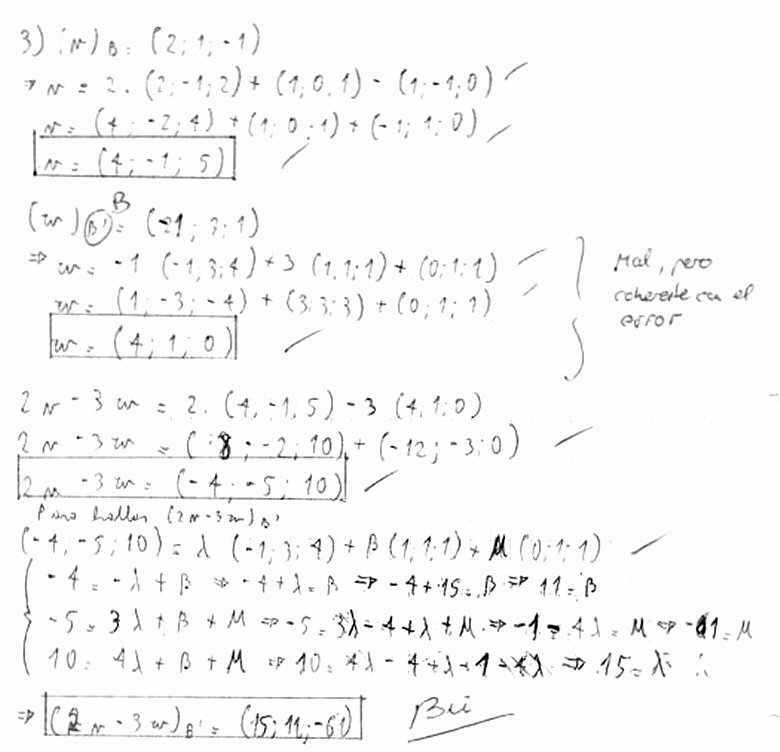 3) (v)B = (2; 1; -1)
⇒ v = 2 . (2; -1; 2) + (1, 0, 1) - (1; -1; 0)
v = (4; -2; 4) + (1; 0; 1) + (-1; 1; 0)
v = (4; -1; 5)
B
(w)B' = (-1; 3; 1)
⇒ w = -1 (-1, 3; 4) + 3 (1, 1; 1) + (0; 1; 1)
w = (1; -3; -4) + (3; 3; 3) + (0; 1; 1)
w = (4; 1; 0)
Mal, pero
coherente con el
error
2v - 3w = 2. (4, -1, 5) - 3 (4, 1; 0)
2v - 3w = (8; -2; 10) + (-12; -3; 0)
2v - 3w = (-4; -5; 10)
Para hallar (2v-3w)B'
(-4, -5; 10) = λ (-1; 3; 4) + β (1; 1; 1) + M (0; 1; 1)
-4 = -λ + β ⇒ -4 + λ = β ⇒ -4 + 15 = β ⇒ 11 = β
-5 = 3λ + β + M ⇒ -5 = 3λ - 4 + λ + M ⇒ -1 - 4λ = M ⇒ -61 = M
10 = 4λ + β + M ⇒ 10 = 4λ - 4 + λ - 1 - 4λ ⇒ 15 = λ
⇒ (2v - 3w)B' = (15; 11; -61)